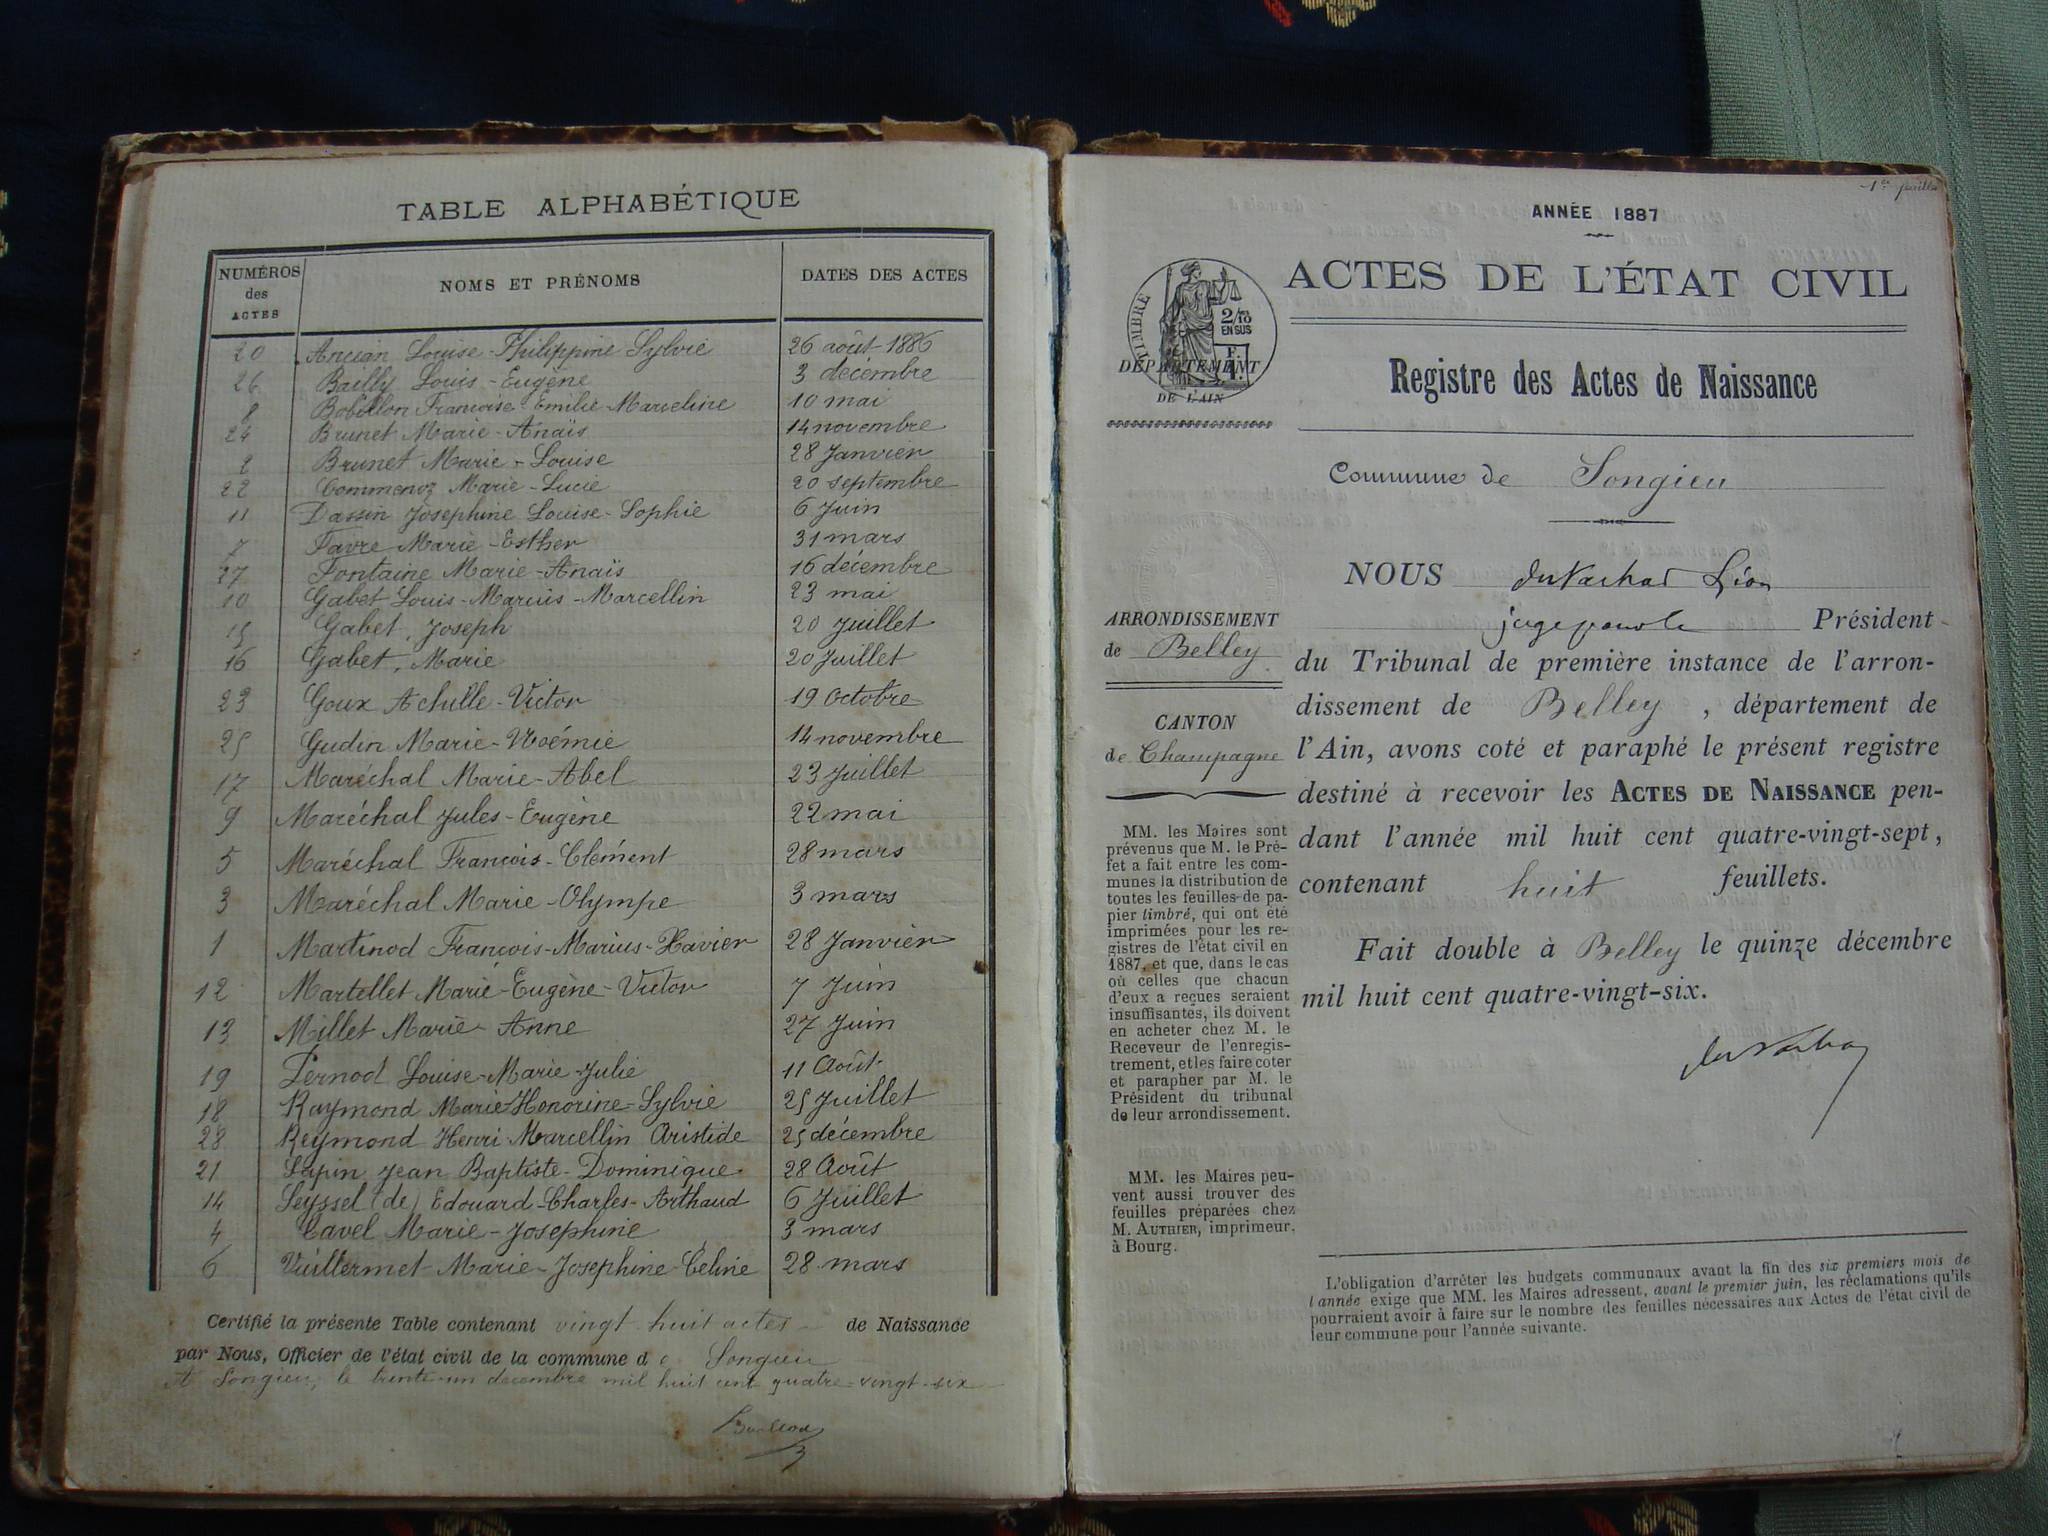 TABLE ALPHABÉTIQUE
NUMÉROS des ACTES NOMS ET PRÉNOMS DATES DES ACTES
20 Ancian Louise-Philippine Sylvie 26 août 1886
26 Bailly Louis-Eugène 3 décembre
8 Bobillon Françoise Emilie Marceline 10 mai
24 Brunet Marie-Anaïs 14 novembre
2 Brunet Marie-Louise 28 Janvier
22 Commenoz Marie-Lucie 20 septembre
11 Dassin Josephine Louise-Sophie 6 Juin
7 Favre Marie-Esther 31 mars
27 Fontaine Marie-Anaïs 16 décembre
10 Gabet Louis-Marius-Marcellin 23 mai
15 Gabet, Joseph 20 Juillet
16 Gabet, Marie 20 Juillet
23 Goux Achille-Victor 19 Octobre
25 Gudin Marie-Noémie 14 novembre
17 Maréchal Marie-Abel 23 Juillet
9 Maréchal Jules-Eugène 22 mai
5 Maréchal François-Clément 28 mars
3 Maréchal Marie-Olympe 3 mars
1 Martinod François-Marius-Xavier 28 Janvier
12 Martellet Marie-Eugène-Victor 7 Juin
13 Millet Marie-Anne 27 Juin
19 Pernod Louise-Marie-Julie 11 Août
18 Raymond Marie Honorine-Sylvie 25 Juillet
28 Reymond Henri Marcellin Aristide 25 décembre
21 Sapin Jean Baptiste-Dominique 28 Août
14 Seyssel (de) Edouard-Charles-Arthaud 6 Juillet
4 Cavel Marie-Josephine 3 mars
6 Vuillermet Marie-Josephine-Céline 28 mars
Certifié la présente Table contenant vingt huit actes de Naissance
par Nous, Officier de l'état civil de la commune de Songieu
A Songieu, le trente-un décembre mil huit cent quatre-vingt-six
ANNÉE 1887
ACTES DE L'ÉTAT CIVIL
TIMBRE
2/10
EN SUS
DÉPARTEMENT
DE L'AIN
Registre des Actes de Naissance
Commune de Songieu
NOUS Léon
Président
ARRONDISSEMENT
de Belley
CANTON
de Champagne
du Tribunal de première instance de l'arron-
dissement de Belley, département de
l'Ain, avons coté et paraphé le présent registre
destiné à recevoir les ACTES DE NAISSANCE pen-
dant l'année mil huit cent quatre-vingt-sept,
contenant huit feuillets.
Fait double à Belley le quinze décembre
mil huit cent quatre-vingt-six.
MM. les Maires sont
prévenus que M. le Pré-
fet a fait entre les com-
munes la distribution de
toutes les feuilles de pa-
pier timbré, qui ont été
imprimées pour les re-
gistres de l'état civil en
1887, et que, dans le cas
où celles que chacun
d'eux a reçues seraient
insuffisantes, ils doivent
en acheter chez M. le
Receveur de l'enregis-
trement, et les faire coter
et parapher par M. le
Président du tribunal
de leur arrondissement.
MM. les Maires peu-
vent aussi trouver des
feuilles préparées chez
M. AUTHIER, imprimeur,
à Bourg.
L'obligation d'arrêter les budgets communaux avant la fin des six premiers mois de
l'année exige que MM. les Maires adressent, avant le premier juin, les réclamations qu'ils
pourraient avoir à faire sur le nombre des feuilles nécessaires aux Actes de l'état civil de
leur commune pour l'année suivante.